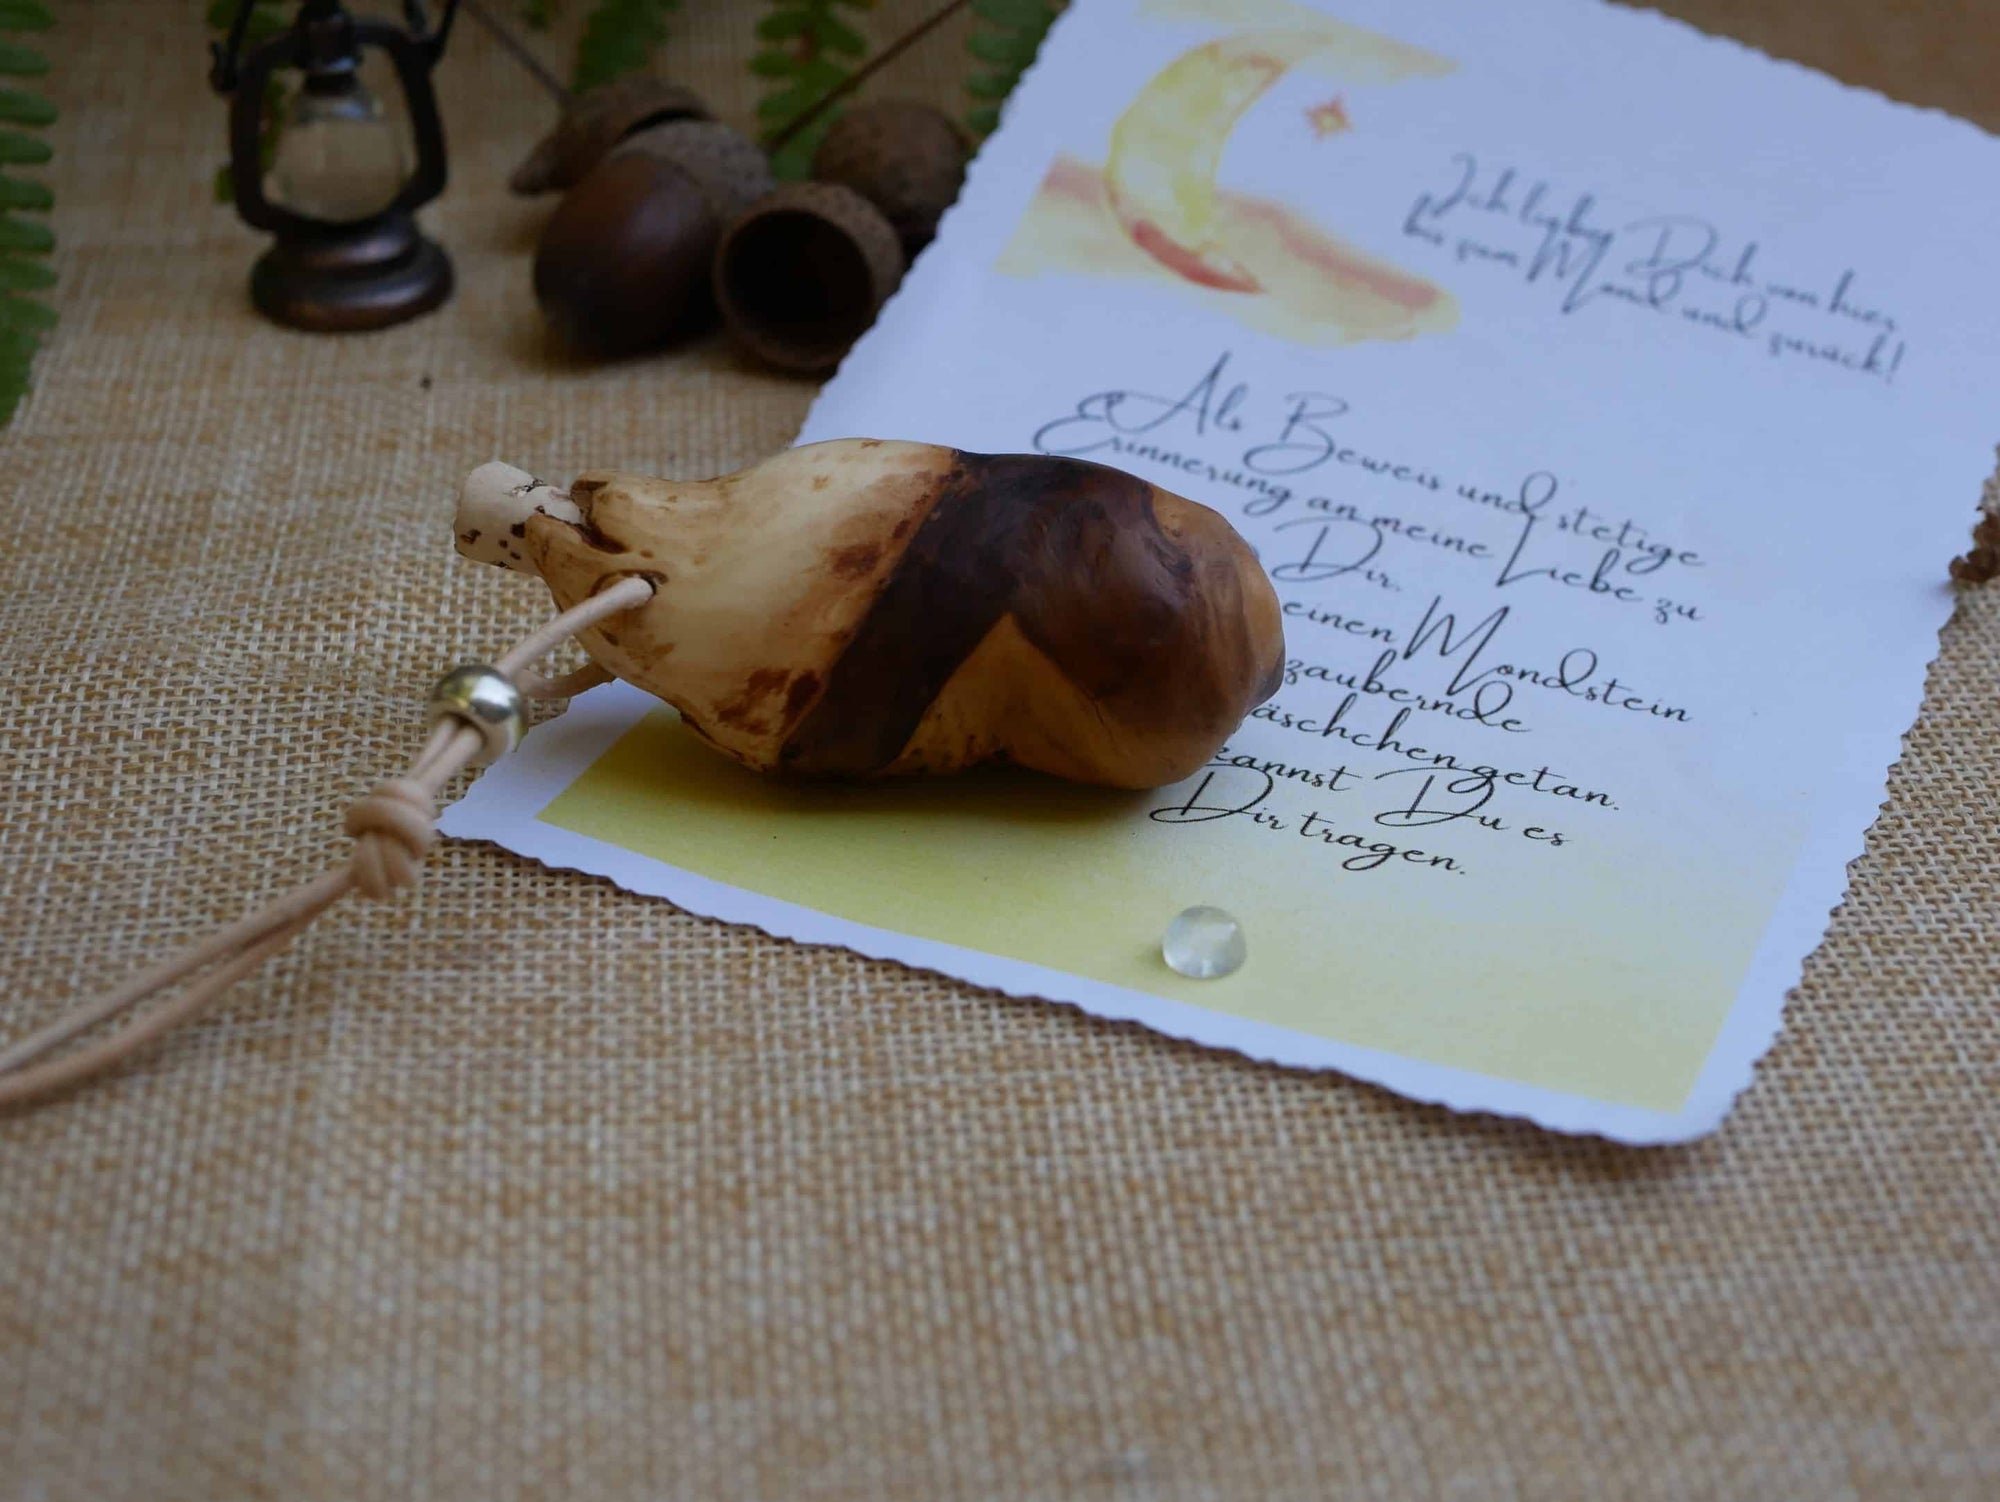 Ich liebe Dich von hier
bis zum Mond und zurück!
Als Beweis und stetige
Erinnerung an meine Liebe zu
Dir.
einen Mondstein
zaubernde
äschchen getan.
kannst Du es
Dir tragen.